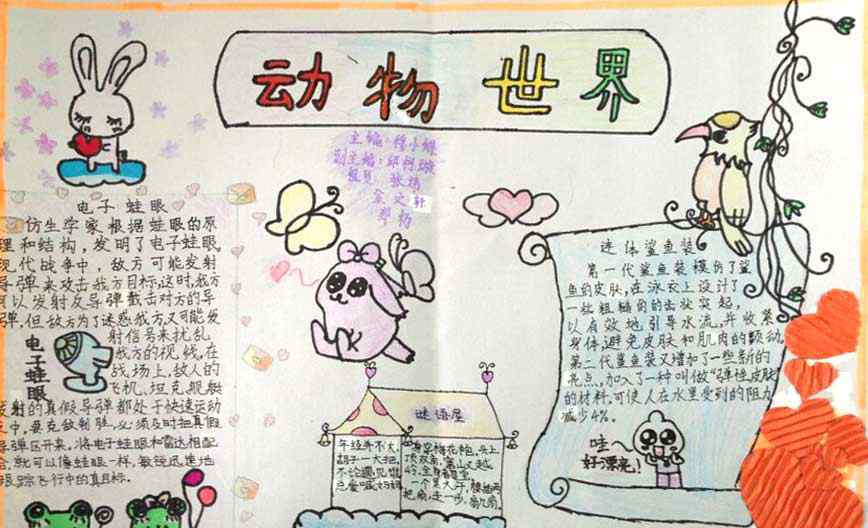 动物世界
主编:穆小娜
副主编:邱
组员:张
文轩
杨
电子蛙眼
仿生学家根据蛙眼的原
理和结构,发明了电子蛙眼,
现代战争中,敌方可能发射
导弹来攻击我方目标,这时,我方
可以发射反导弹截击对方的导
弹,但敌方为了迷惑我方,又可能发
射信号来扰乱
我方的视线,在
战场上,敌人的
飞机,坦克,舰艇
发射的真假导弹都处于快速运动
之中,要克敌制胜,必须及时把真假
导弹区开来,将电子蛙眼和雷达相配
合,就可以像蛙眼一样,敏锐迅速地
跟踪飞行中的真目标。
电子蛙眼
谜语屋
年纪并不大,
胡子一大把,
不论遇见谁,
总爱喊妈妈
身穿梅花袍,头上
顶双角,
岭,全身
一个黑大汉,腰插两
把扇,走一步,扇几扇。
连体鲨鱼装
第一代鲨鱼装模仿了鲨
鱼的皮肤,在泳衣上设计了
一些粗糙的齿状突起,
以有效地引导水流,并收紧
身体,避免皮肤和肌肉的颤动,
第二代鲨鱼装又增加了一些新的
亮点,加入了一种叫做“弹性皮肤”
的材料,可使人在水里受到的阻力
减少4%。
哇~
好漂亮!